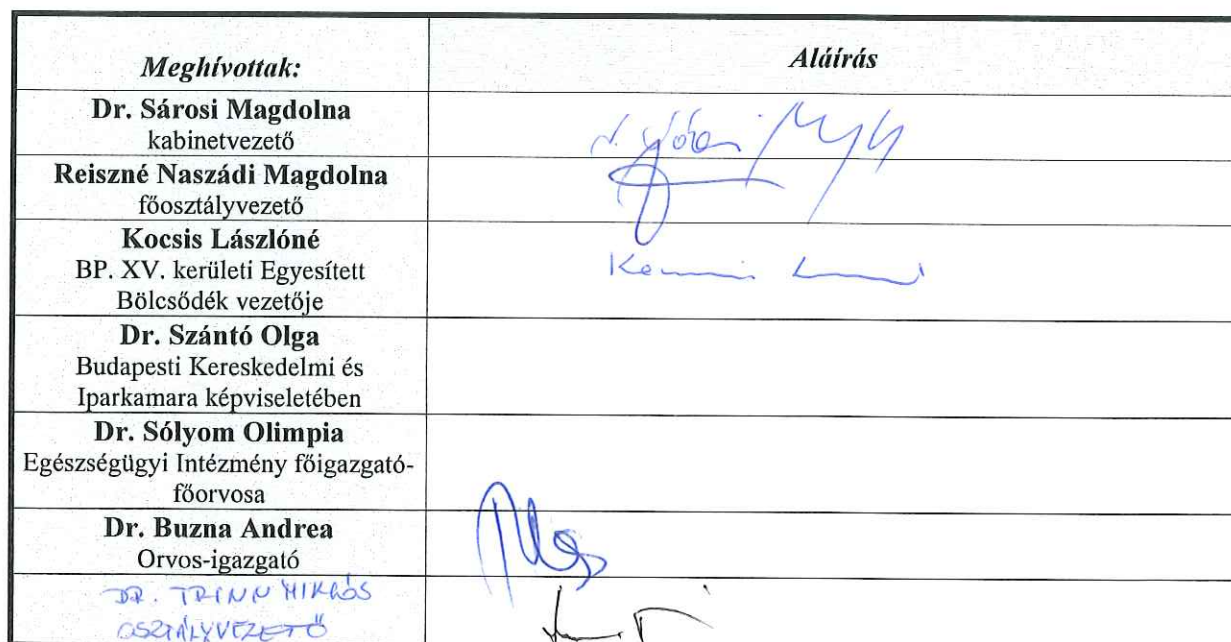 Meghívottak:
Aláírás
Dr. Sárosi Magdolna
kabinetvezető
Reiszné Naszádi Magdolna
főosztályvezető
Kocsis Lászlóné
BP. XV. kerületi Egyesített
Bölcsődék vezetője
Dr. Szántó Olga
Budapesti Kereskedelmi és
Iparkamara képviseletében
Dr. Sólyom Olimpia
Egészségügyi Intézmény főigazgató-
főorvosa
Dr. Buzna Andrea
Orvos-igazgató
DR. TRINN MIKLÓS
OSZTÁLYVEZETŐ